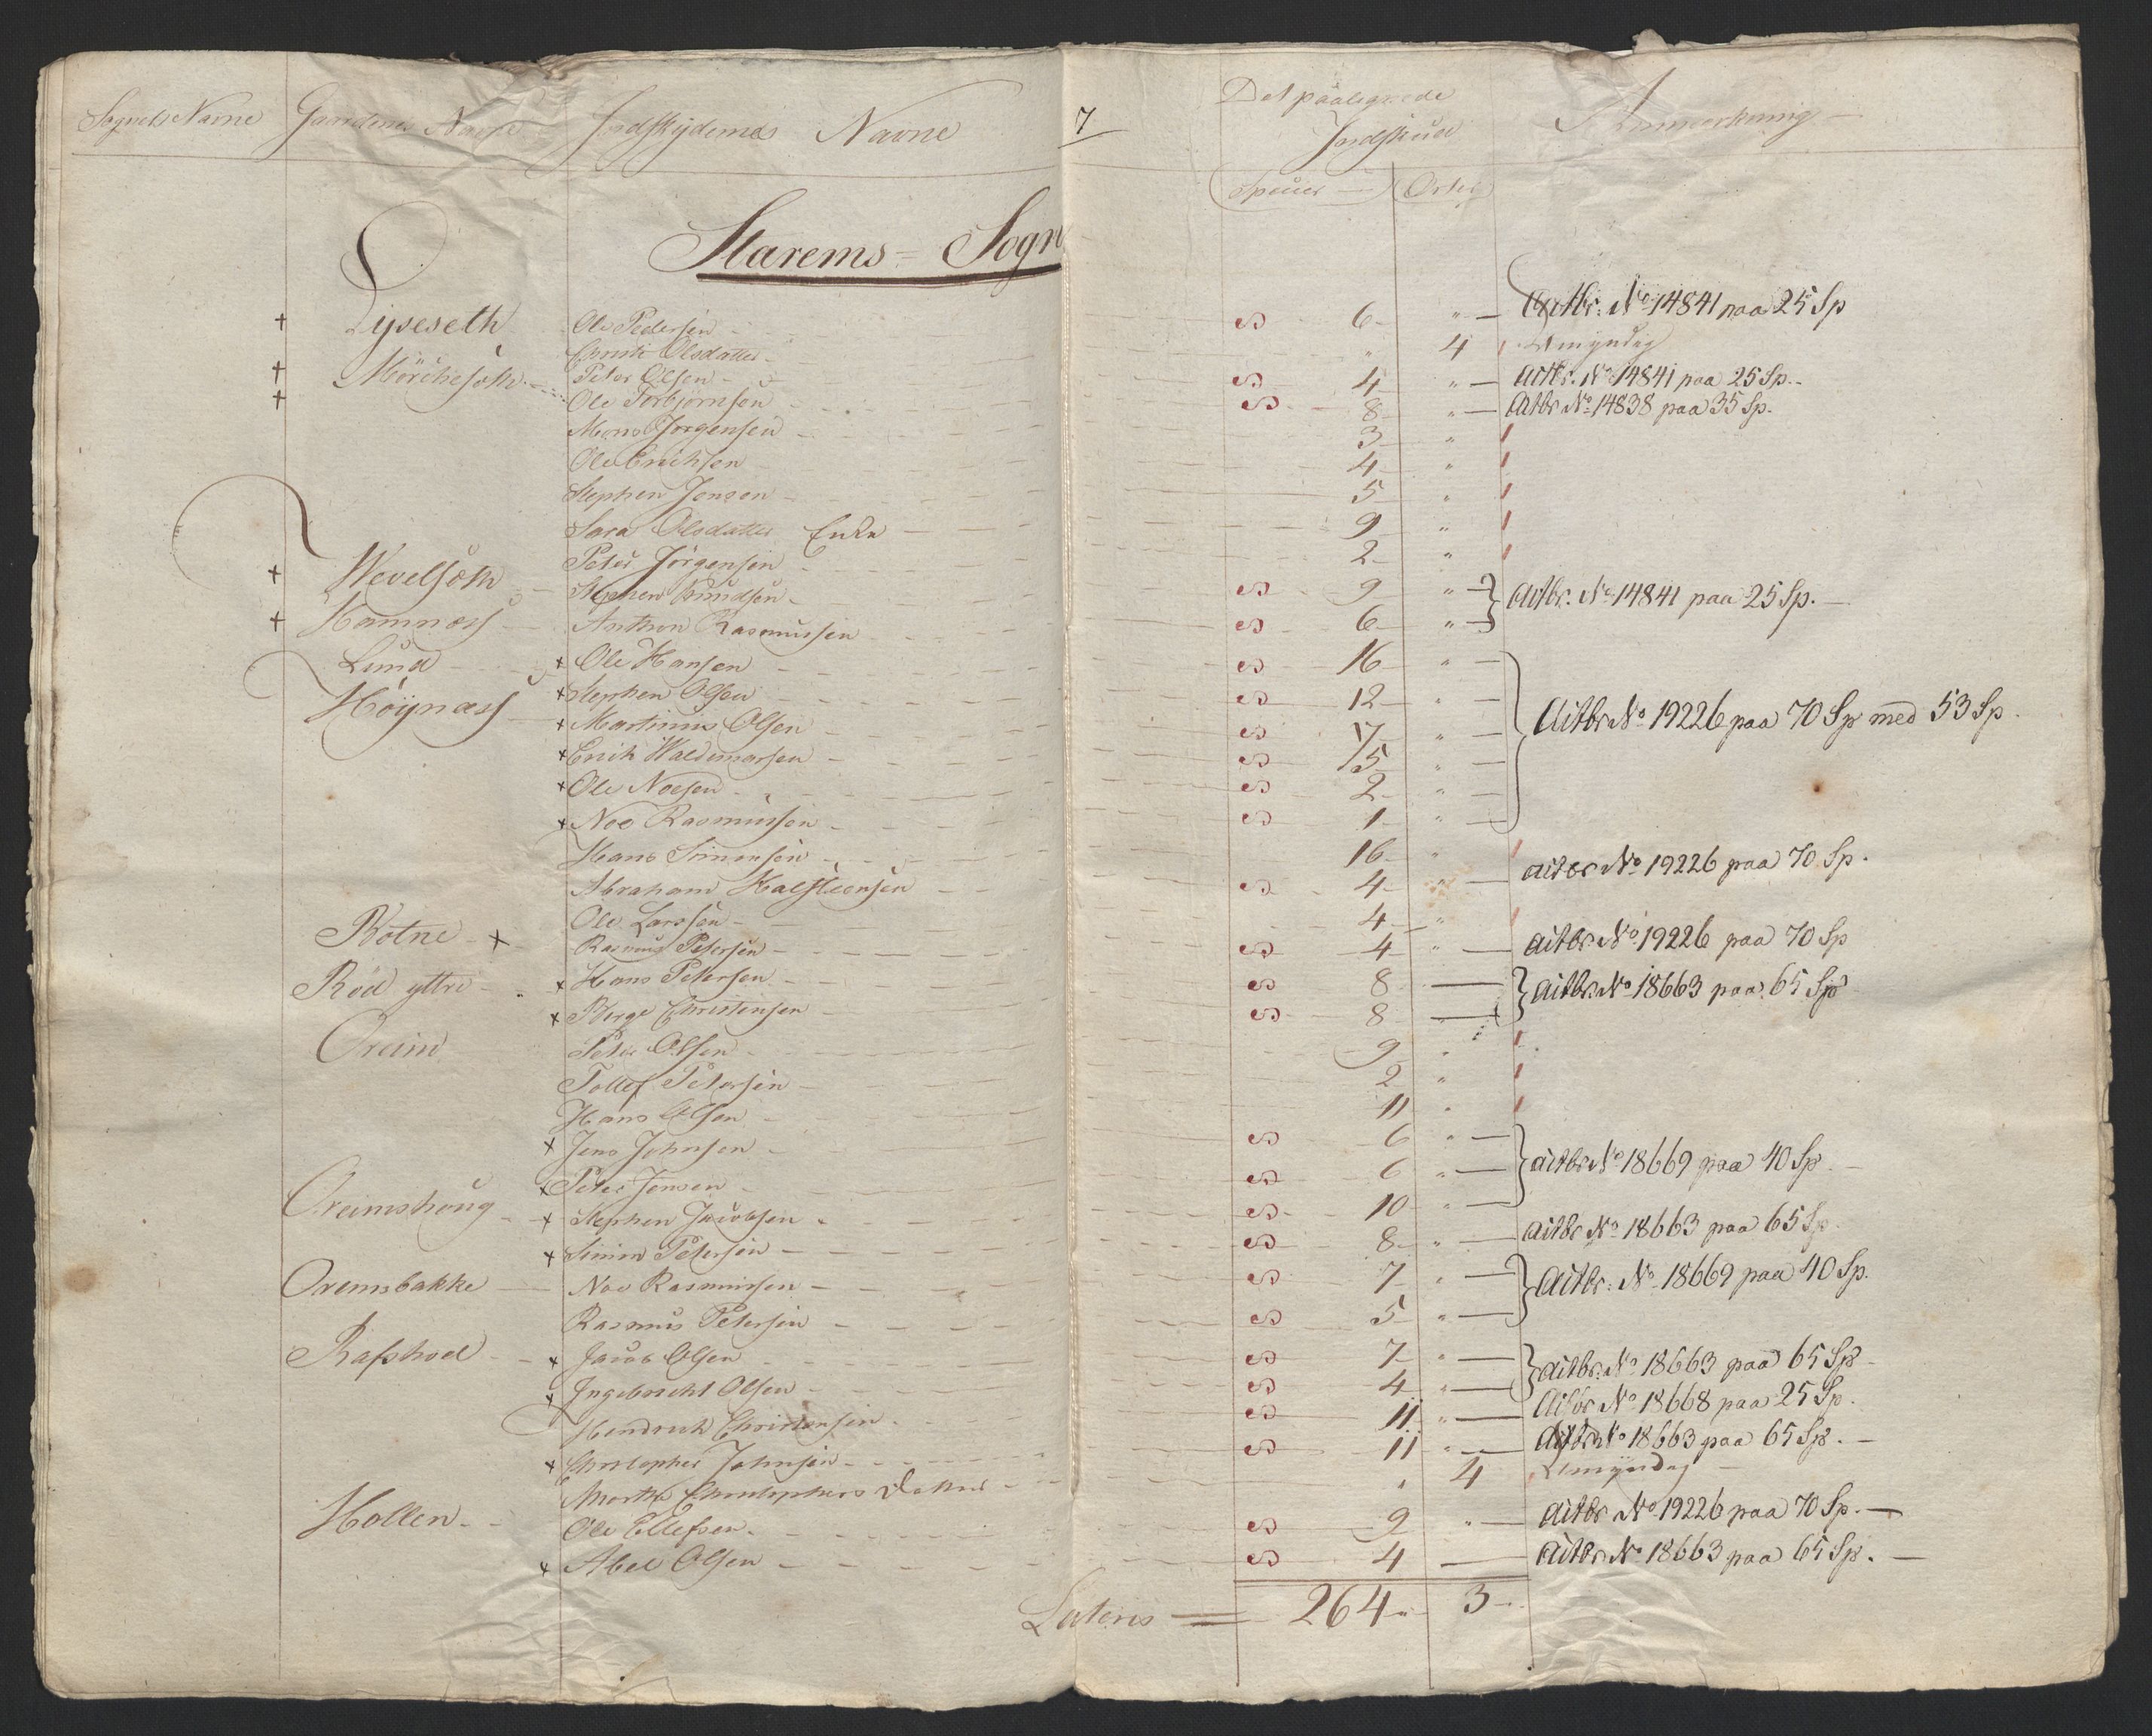 Sognets Navne Gaardenes Navne Jordskydernes Navne 7 Det paalignede Jordskud Anmerkning
Specier Orter
Starems = Sogn
Lyseseth Ole Pedersen 6 " Aitbr: No 14841 paa 25 Sp
Christi Olsdatter " 4 Umyndig
Mörchesöth Peter Olsen 4 " Aitbr. No 14841 paa 25 Sp.
Ole Torbjörnsen 8 " Aitbr No 14838 paa 35 Sp.
Mons Jörgensen 3 "
Ole Erichsen 4 "
Stephen Jonsen 5 "
Sara Olsdatter Enke 9 "
Peter Jörgensen 2 "
Wevelsöth Stephen Knudsen 9 " Aitbr. No 14841 paa 25 Sp.
Hamnæss Anthon Rasmussen 6 "
Lund Ole Hansen 16 "
Höynæss Stephen Olsen 12 " Aitbr No 19226 paa 70 Sp med 53 Sp.
Martinus Olsen 7 "
Erich Waldemarsen 15 "
Ole Noesen 2 "
Noe Rasmussen 1 "
Hans Simensen 16 "
Abraham Halsteensen 4 " aitbr No 19226 paa 70 Sp.
Ole Larssen 4 "
Rötne Rasmus Petersen 4 " aitbr No 19226 paa 70 Sp
Röd yttre Hans Petersen 8 aitbr No 18663 paa 65 Sp
Berge Christensen 8 "
Oreim Peter Olsen 9 "
Tollef Petersen 2 "
Hans Olsen 11 "
Jens Johnsen 6 " aitbr No 18669 paa 40 Sp.
Peter Jensen 6 "
Oreimshoug Stephen Jacobsen 10 "
Simon Petersen 8 " aitbr No 18663 paa 65 Sp.
Oremsbakke Noe Rasmussen 7 " Aitbr: No 18669 paa 40 Sp.
Rasmus Petersen 5 "
Rafshoel Jacob Olsen 7 " aitbr. No 18663 paa 65 Sp
Ingebrecht Olsen 4 "
Hendrick Christensen 11 " Aitbr No 18668 paa 25 Sp.
Christopher Johnsen 11 " Aitbr No 18663 paa 65 Sp.
Marthe Christophers Datter " 4 Umyndig
Hollen Ole Ellefsen 9 " Aitbr No 19226 paa 70 Sp.
Abel Olsen 4 Aitbr No 18663 paa 65 Sp.
Lateris 264 " 3